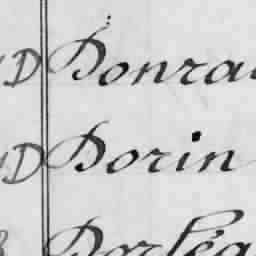 D Donra
D Dorin
Dorléa